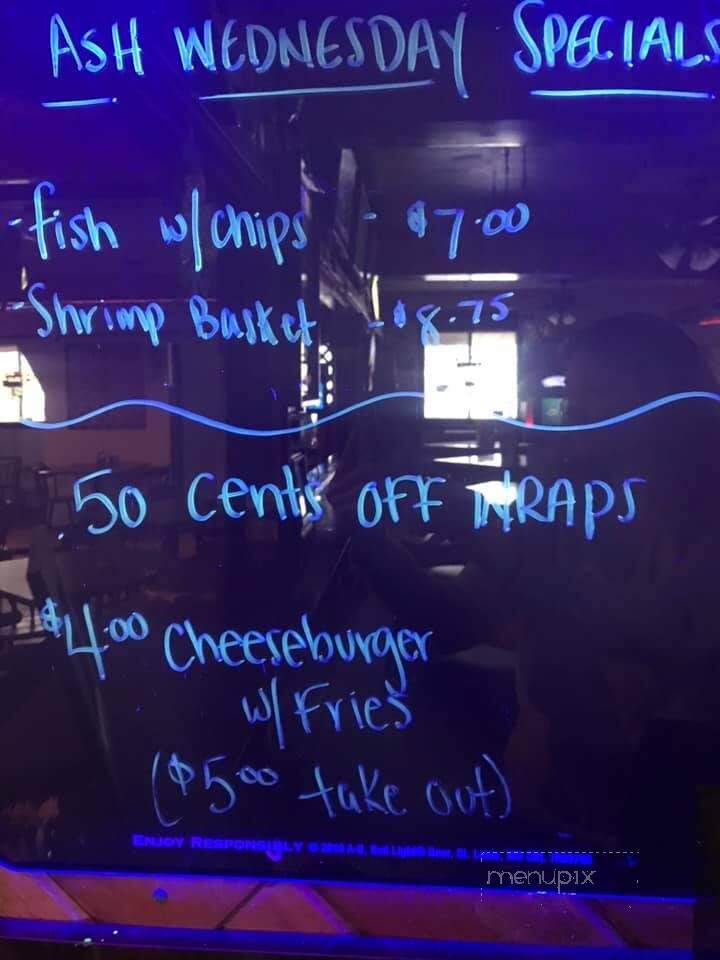 ASH WEDNESDAY SPECIALS
-fish w/chips - $7.00
-Shrimp Basket - $8.75
.50 cents OFF WRAPS
$4.00 Cheeseburger
w/ Fries
($5.00 take out)
ENJOY RESPONSIBLY
menupix